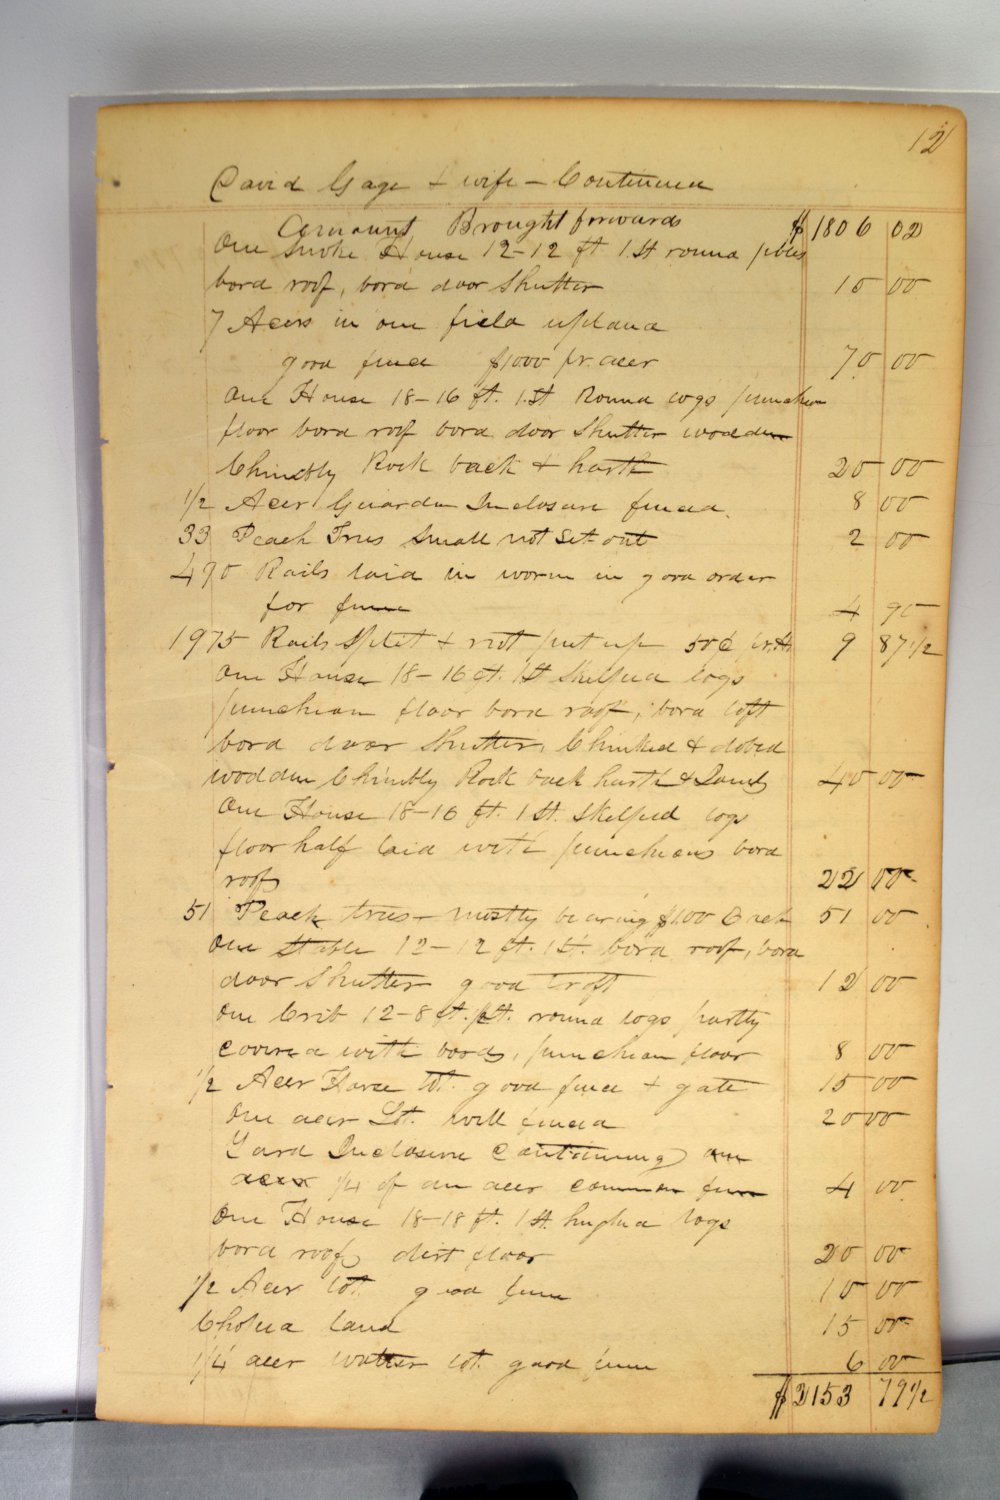 12
David Gage & wife – Continued
Amount Brought forwards $1806 02
One Smoke House 12–12 ft 1 St round poles
bord roof, bord door Shutter 15 00
7 Acers in one field upland
good fence $1000 pr. acer 70 00
One House 18–16 ft. 1 St Round logs punchion
floor bord roof bord door Shutter wooden
Chimbly Rock back & harth 20 00
1/2 Acer Guarden Inclosure fenced. 8 00
33 Peach Trees Small not Set out 2 00
490 Rails laid in worm in good order
for fence 4 90
1975 Rails Split & not put up 50¢ pr. H 9 87 1/2
One House 18–16 ft. 1 St Skelped logs
punchion floor bord roof, bord loft
bord door Shutter, Chinked & dobed
wooden Chimbly Rock back harth & 40 00
One House 18–16 ft. 1 St. Skelped logs
floor half laid with punchions bord
roof 22 00
51 Peach trees – mostly bearing $100 Each 51 00
One Stable 12–12 ft. 1 St. bord roof, bord
door Shutter good troft 12 00
One Crib 12–8 ft. 1 St. round logs partly
covered with bords, punchion floor 8 00
1/2 Acer Horse lot. good fence & gate 15 00
One acer Lot. well fenced 20 00
Yard Inclosure Containing one
acer 1/4 of an acer common fence 4 00
One House 18–18 ft. 1 St. hughed logs
bord roof dirt floor 20 00
1/2 Acer lot good fence 10 00
Choped land 15 00
1/4 acer watter lot. good fence 6 00
$2153 79 1/2